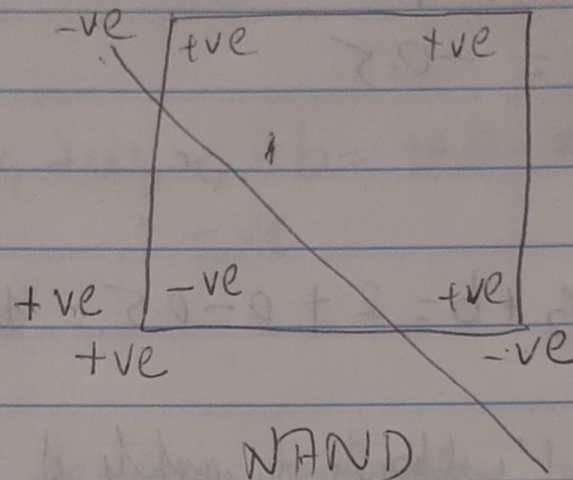 -ve +ve +ve
-ve +ve
+ve
+ve -ve
NAND